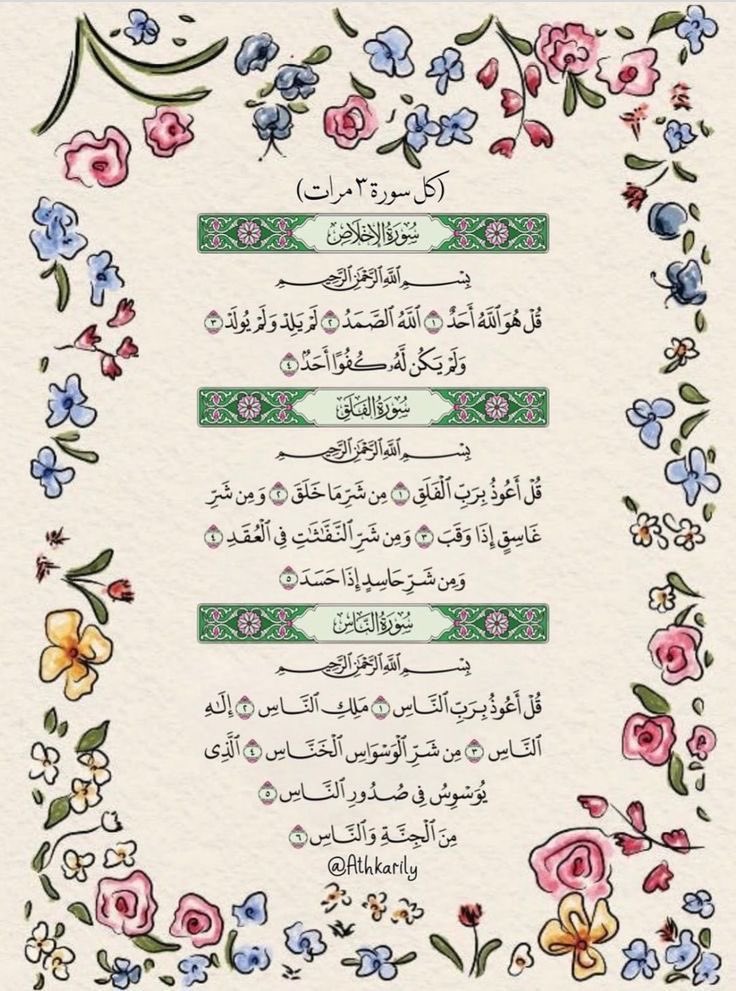 (كل سورة ٣ مرات)
سُورَةُ الإِخْلَاصِ
بِسْمِ ٱللَّهِ ٱلرَّحْمَٰنِ ٱلرَّحِيمِ
قُلْ هُوَ ٱللَّهُ أَحَدٌ ١ ٱللَّهُ ٱلصَّمَدُ ٢ لَمْ يَلِدْ وَلَمْ يُولَدْ ٣
وَلَمْ يَكُن لَّهُۥ كُفُوًا أَحَدٌۢ ٤
سُورَةُ الفَلَقِ
بِسْمِ ٱللَّهِ ٱلرَّحْمَٰنِ ٱلرَّحِيمِ
قُلْ أَعُوذُ بِرَبِّ ٱلْفَلَقِ ١ مِن شَرِّ مَا خَلَقَ ٢ وَمِن شَرِّ
غَاسِقٍ إِذَا وَقَبَ ٣ وَمِن شَرِّ ٱلنَّفَّٰثَٰتِ فِى ٱلْعُقَدِ ٤
وَمِن شَرِّ حَاسِدٍ إِذَا حَسَدَ ٥
سُورَةُ النَّاسِ
بِسْمِ ٱللَّهِ ٱلرَّحْمَٰنِ ٱلرَّحِيمِ
قُلْ أَعُوذُ بِرَبِّ ٱلنَّاسِ ١ مَلِكِ ٱلنَّاسِ ٢ إِلَٰهِ
ٱلنَّاسِ ٣ مِن شَرِّ ٱلْوَسْوَاسِ ٱلْخَنَّاسِ ٤ ٱلَّذِى
يُوَسْوِسُ فِى صُدُورِ ٱلنَّاسِ ٥
مِنَ ٱلْجِنَّةِ وَٱلنَّاسِ ٦
@Athkarily